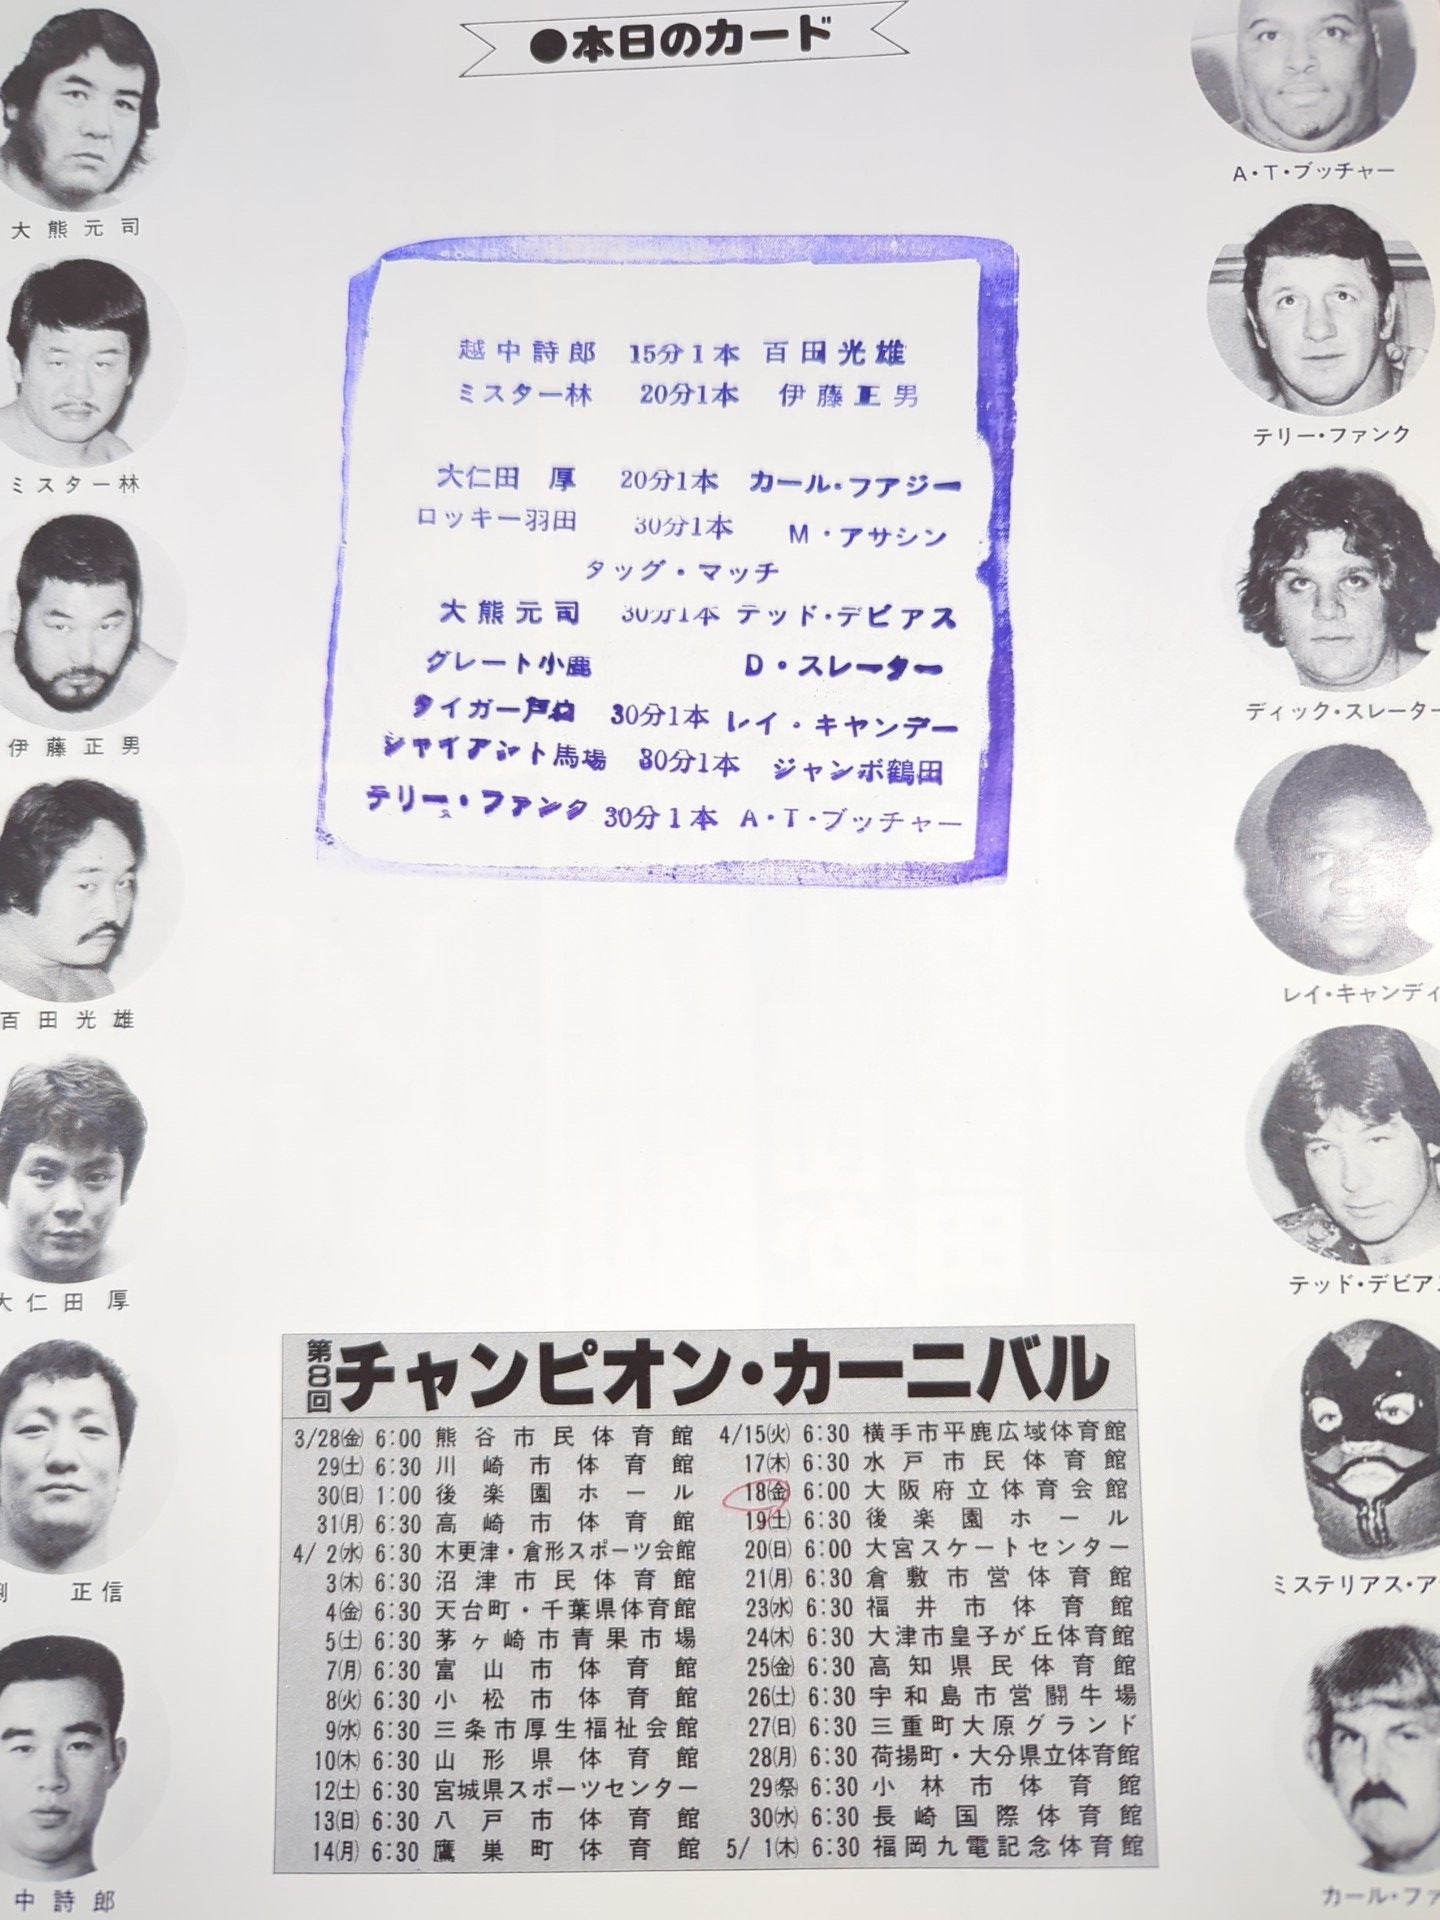 ●本日のカード
大熊元司
ミスター林
伊藤正男
百田光雄
大仁田厚
正信
中詩郎
A・T・ブッチャー
テリー・ファンク
ディック・スレーター
レイ・キャンディ
テッド・デビアス
ミステリアス・ア
カール・ファ
越中詩郎 15分1本 百田光雄
ミスター林 20分1本 伊藤正男
大仁田 厚 20分1本 カール・フアジー
ロッキー羽田 30分1本 M・アサシン
タッグ・マッチ
大熊元司 30分1本 テッド・デビアス
グレート小鹿 D・スレーター
タイガー戸口 30分1本 レイ・キャンデー
ジャイアント馬場 30分1本 ジャンボ鶴田
テリー・ファンク 30分1本 A・T・ブッチャー
第8回 チャンピオン・カーニバル
3/28㈮ 6:00 熊谷市民体育館
29㈯ 6:30 川崎市体育館
30㈰ 1:00 後楽園ホール
31㈪ 6:30 高崎市体育館
4/2㈬ 6:30 木更津・倉形スポーツ会館
3㈭ 6:30 沼津市民体育館
4㈮ 6:30 天台町・千葉県体育館
5㈯ 6:30 茅ヶ崎市青果市場
7㈪ 6:30 富山市体育館
8㈫ 6:30 小松市体育館
9㈬ 6:30 三条市厚生福祉会館
10㈭ 6:30 山形県体育館
12㈯ 6:30 宮城県スポーツセンター
13㈰ 6:30 八戸市体育館
14㈪ 6:30 鷹巣町体育館
4/15㈫ 6:30 横手市平鹿広域体育館
17㈭ 6:30 水戸市民体育館
18㈮ 6:00 大阪府立体育会館
19㈯ 6:30 後楽園ホール
20㈰ 6:00 大宮スケートセンター
21㈪ 6:30 倉敷市営体育館
23㈬ 6:30 福井市体育館
24㈭ 6:30 大津市皇子が丘体育館
25㈮ 6:30 高知県民体育館
26㈯ 6:30 宇和島市営闘牛場
27㈰ 6:30 三重町大原グランド
28㈪ 6:30 荷揚町・大分県立体育館
29㈷ 6:30 小林市体育館
30㈬ 6:30 長崎国際体育館
5/1㈭ 6:30 福岡九電記念体育館